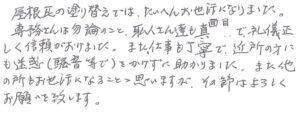 屋根瓦の塗り替えでは、たいへんお世話になりました。
専務さんは勿論のこと、職人さん達も真面目で、礼儀正
しく信頼がおけました。また仕事も丁寧で、近所の方に
も迷惑(騒音等で)をかけずに助かりました。また他
の所もお世話になることと思いますが、その節はよろしく
お願い致します。